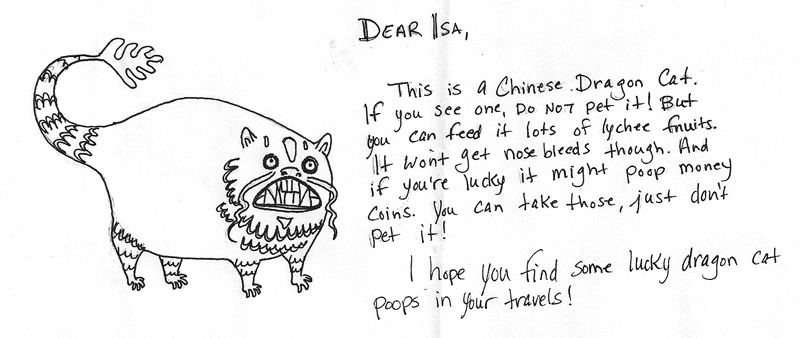 DEAR ISA,
This is a Chinese Dragon Cat.
If you see one, DO NOT pet it! But
you can feed it lots of lychee fruits.
It won't get nose bleeds though. And
if you're lucky it might poop money
coins. You can take those, just don't
pet it!
I hope you find some lucky dragon cat
poops in your travels!